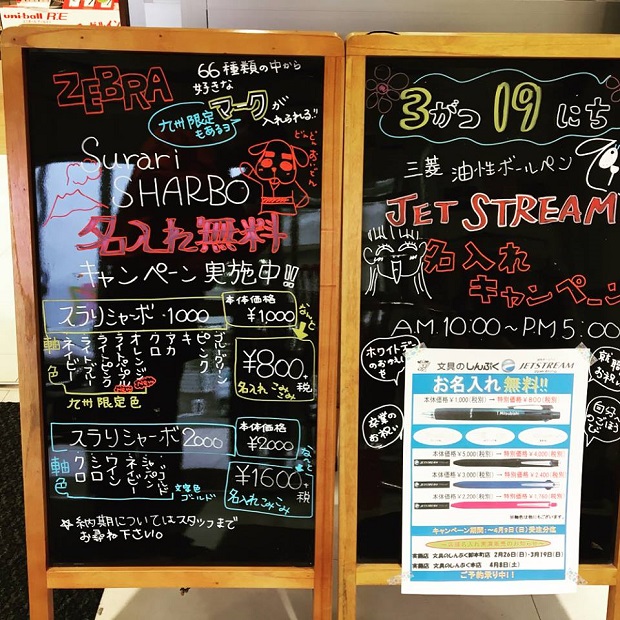 uni-ball R:E
ZEBRA
66種類の中から
好きな
マークが
入れられる!!
九州限定
もあるヨ
Surari
SHARBO
どんどん
おいどん
名入れ無料
キャンペーン実施中!!
スラリシャーボ・1000
本体価格
¥1,000
なんと
¥800
+税
名入れこみこみ
軸色
ネイビー
ライトブルー
オレンジ
アカ
キ
ピンク
New
New
九州限定色
スラリシャーボ2000
本体価格
¥2,000
なんと
¥1600
+税
名入れこみこみ
軸色
クロ
シロ
ワイン
ネイビー
文字色
ゴールド
☆納期についてはスタッフまで
お尋ね下さい。
3がつ19にち
三菱 油性ボールペン
JET STREAM
名入れ
キャンペーン
A.M.10:00~P.M5:00
ホワイトデー
のおかえしを
卒業の
お祝い
就職
お祝い
自分へ
ごほう
び
文具のしんぷく JETSTREAM
お名入れ無料!!
本体価格¥1,000(税別)→特別価格¥800(税別)
本体価格¥5,000(税別)→特別価格¥4,000(税別)
本体価格¥3,000(税別)→特別価格¥2,400(税別)
本体価格¥2,200(税別)→特別価格¥1,760(税別)
キャンペーン期間:~4月9日(日)受定分迄
実施店 文具のしんぷく卸本町店 2月26日(日)・3月19日(日)
実施店 文具のしんぷく本店 4月8日(土)
ご予約承り中!!